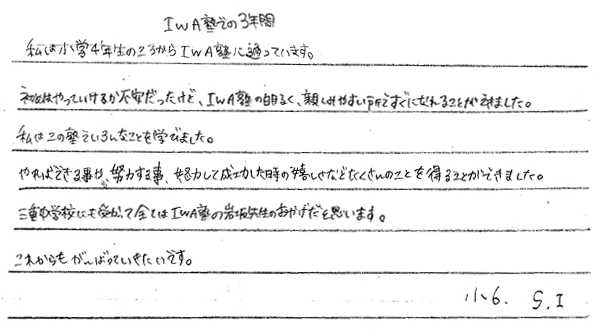 IWA塾での3年間
私は小学4年生のころからIWA塾に通っています。
初めはやっていけるか不安だったけど、IWA塾の明るく、親しみやすい所ですぐになれることができました。
私はこの塾でいろんなことを学びました。
やればできる事や、努力する事、努力して成功した時の嬉しさなどたくさんのことを得ることができました。
三重中学校にも受かって全てはIWA塾の岩坂先生のおかげだと思います。
これからもがんばっていきたいです。
小6. S.I